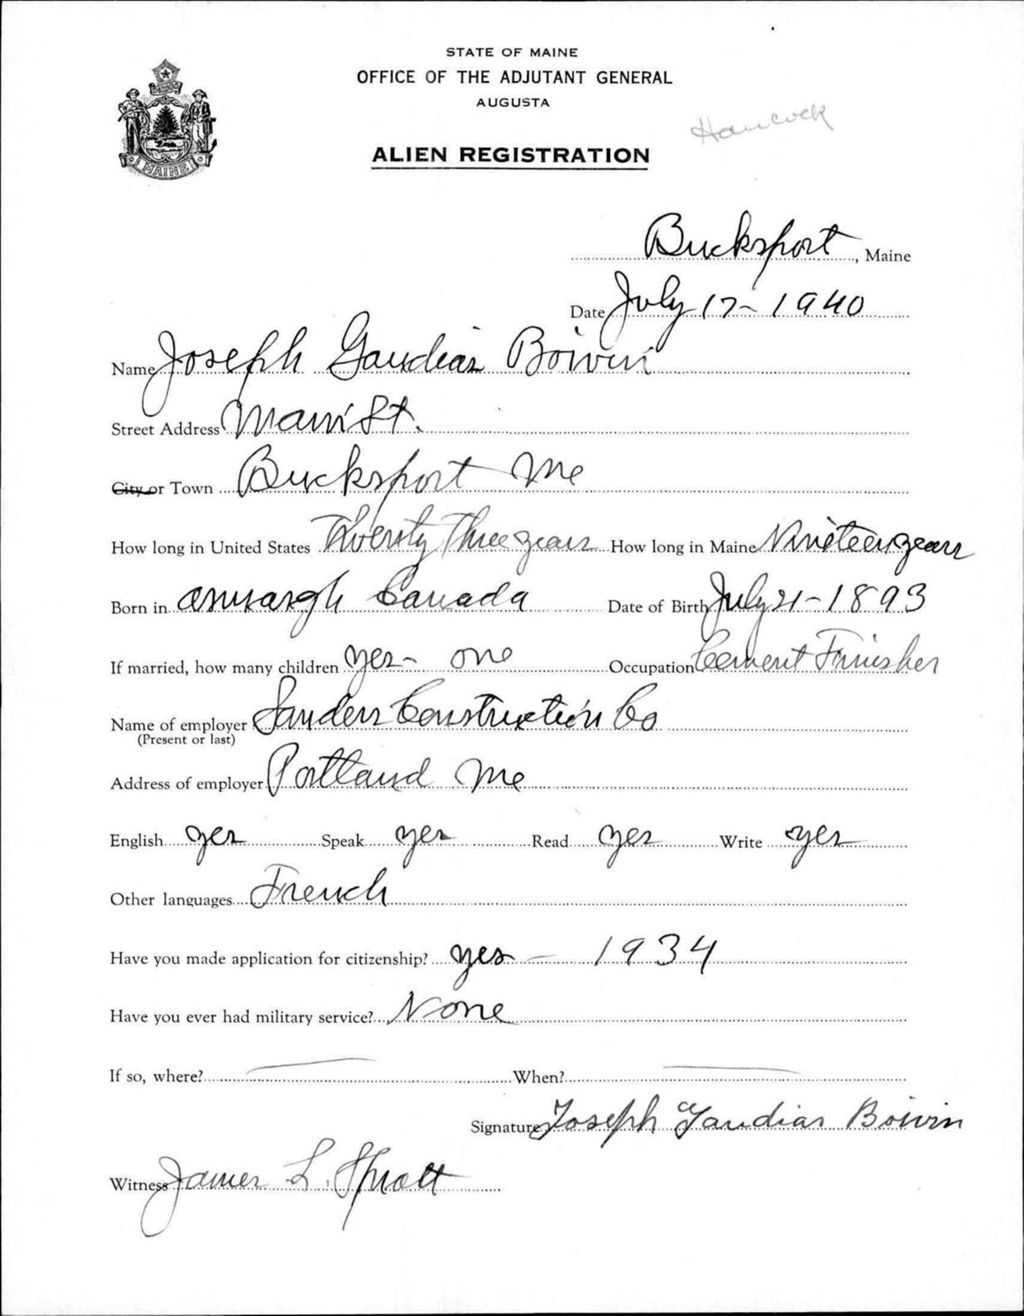 STATE OF MAINE
OFFICE OF THE ADJUTANT GENERAL
AUGUSTA
Hancock
ALIEN REGISTRATION
MAINE
Bucksport, Maine
Date July 17 - 1940
Name Joseph Gaudias Boivin
Street Address Main St.
City or Town Bucksport Me
How long in United States Twenty Three years How long in Maine Nineteen years
Born in Canada Date of Birth July 21 - 1893
If married, how many children yes - one Occupation Cement Finisher
Name of employer Sanders Construction Co
(Present or last)
Address of employer Portland Me
English yes Speak yes Read yes Write yes
Other languages French
Have you made application for citizenship? yes - 1934
Have you ever had military service? None
If so, where? When?
Signature Joseph Gaudias Boivin
Witness James L. Spratt